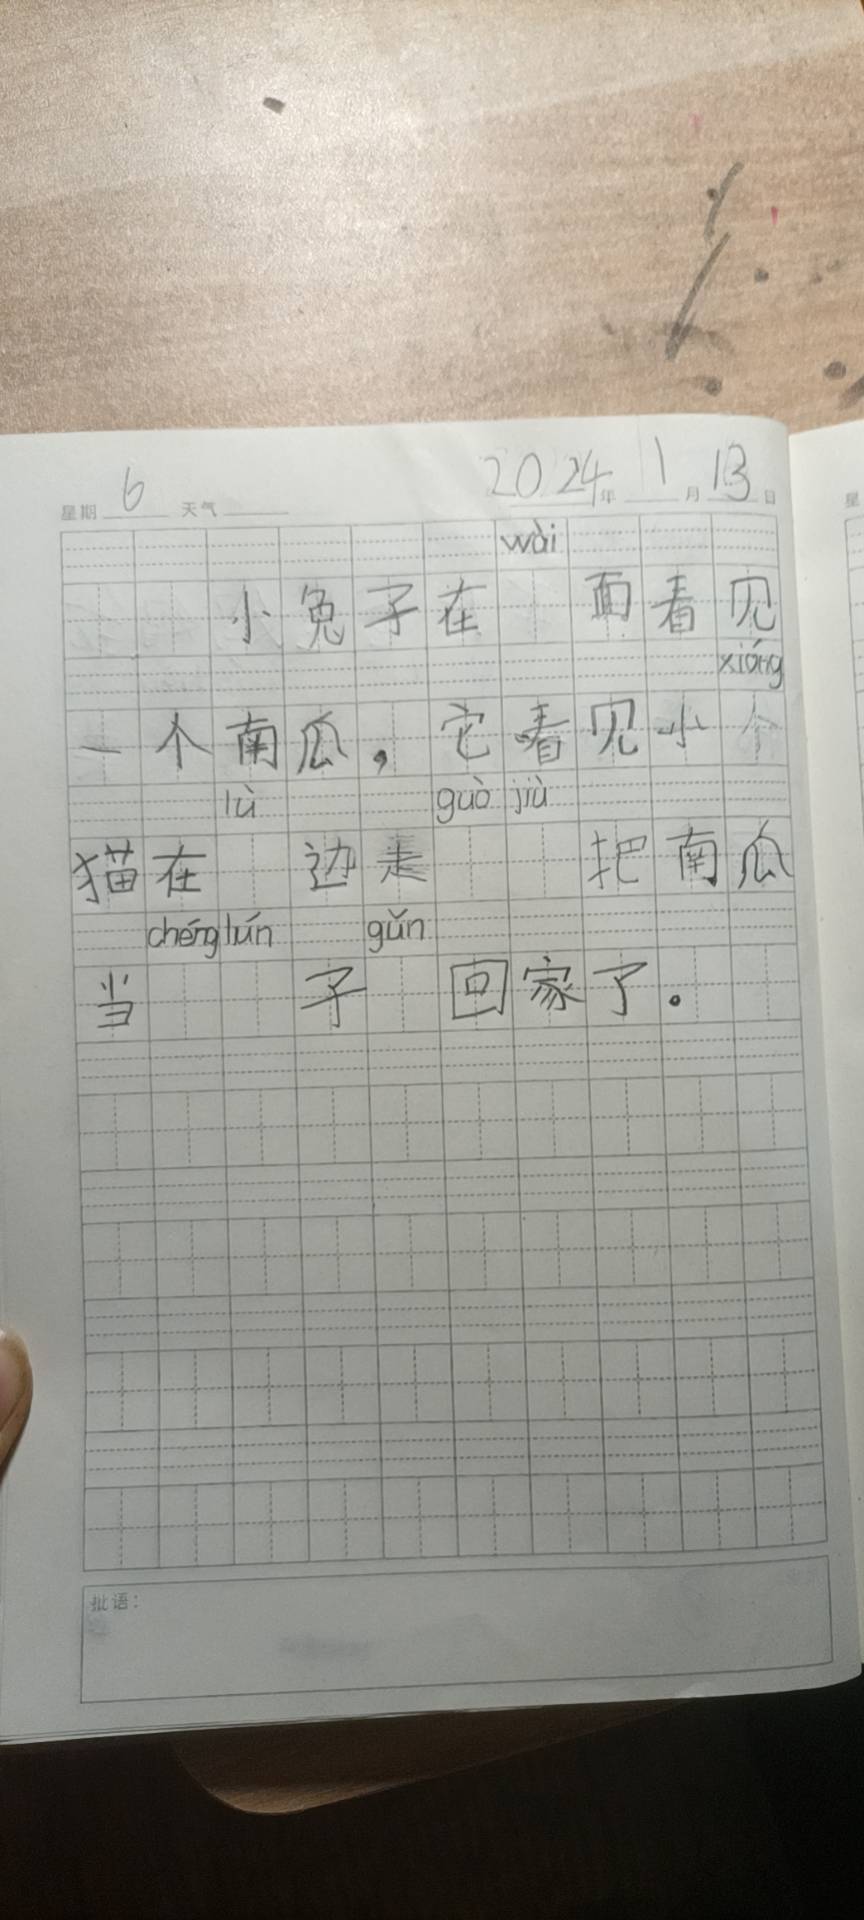 星期 6 天气 2024年 1月 13日
wài
小兔子在 面看见
xióng
一个南瓜，它看见小
lù guò jiù
猫在 边走 把南瓜
chéng lún gǔn
当 子 回家了。
批语：